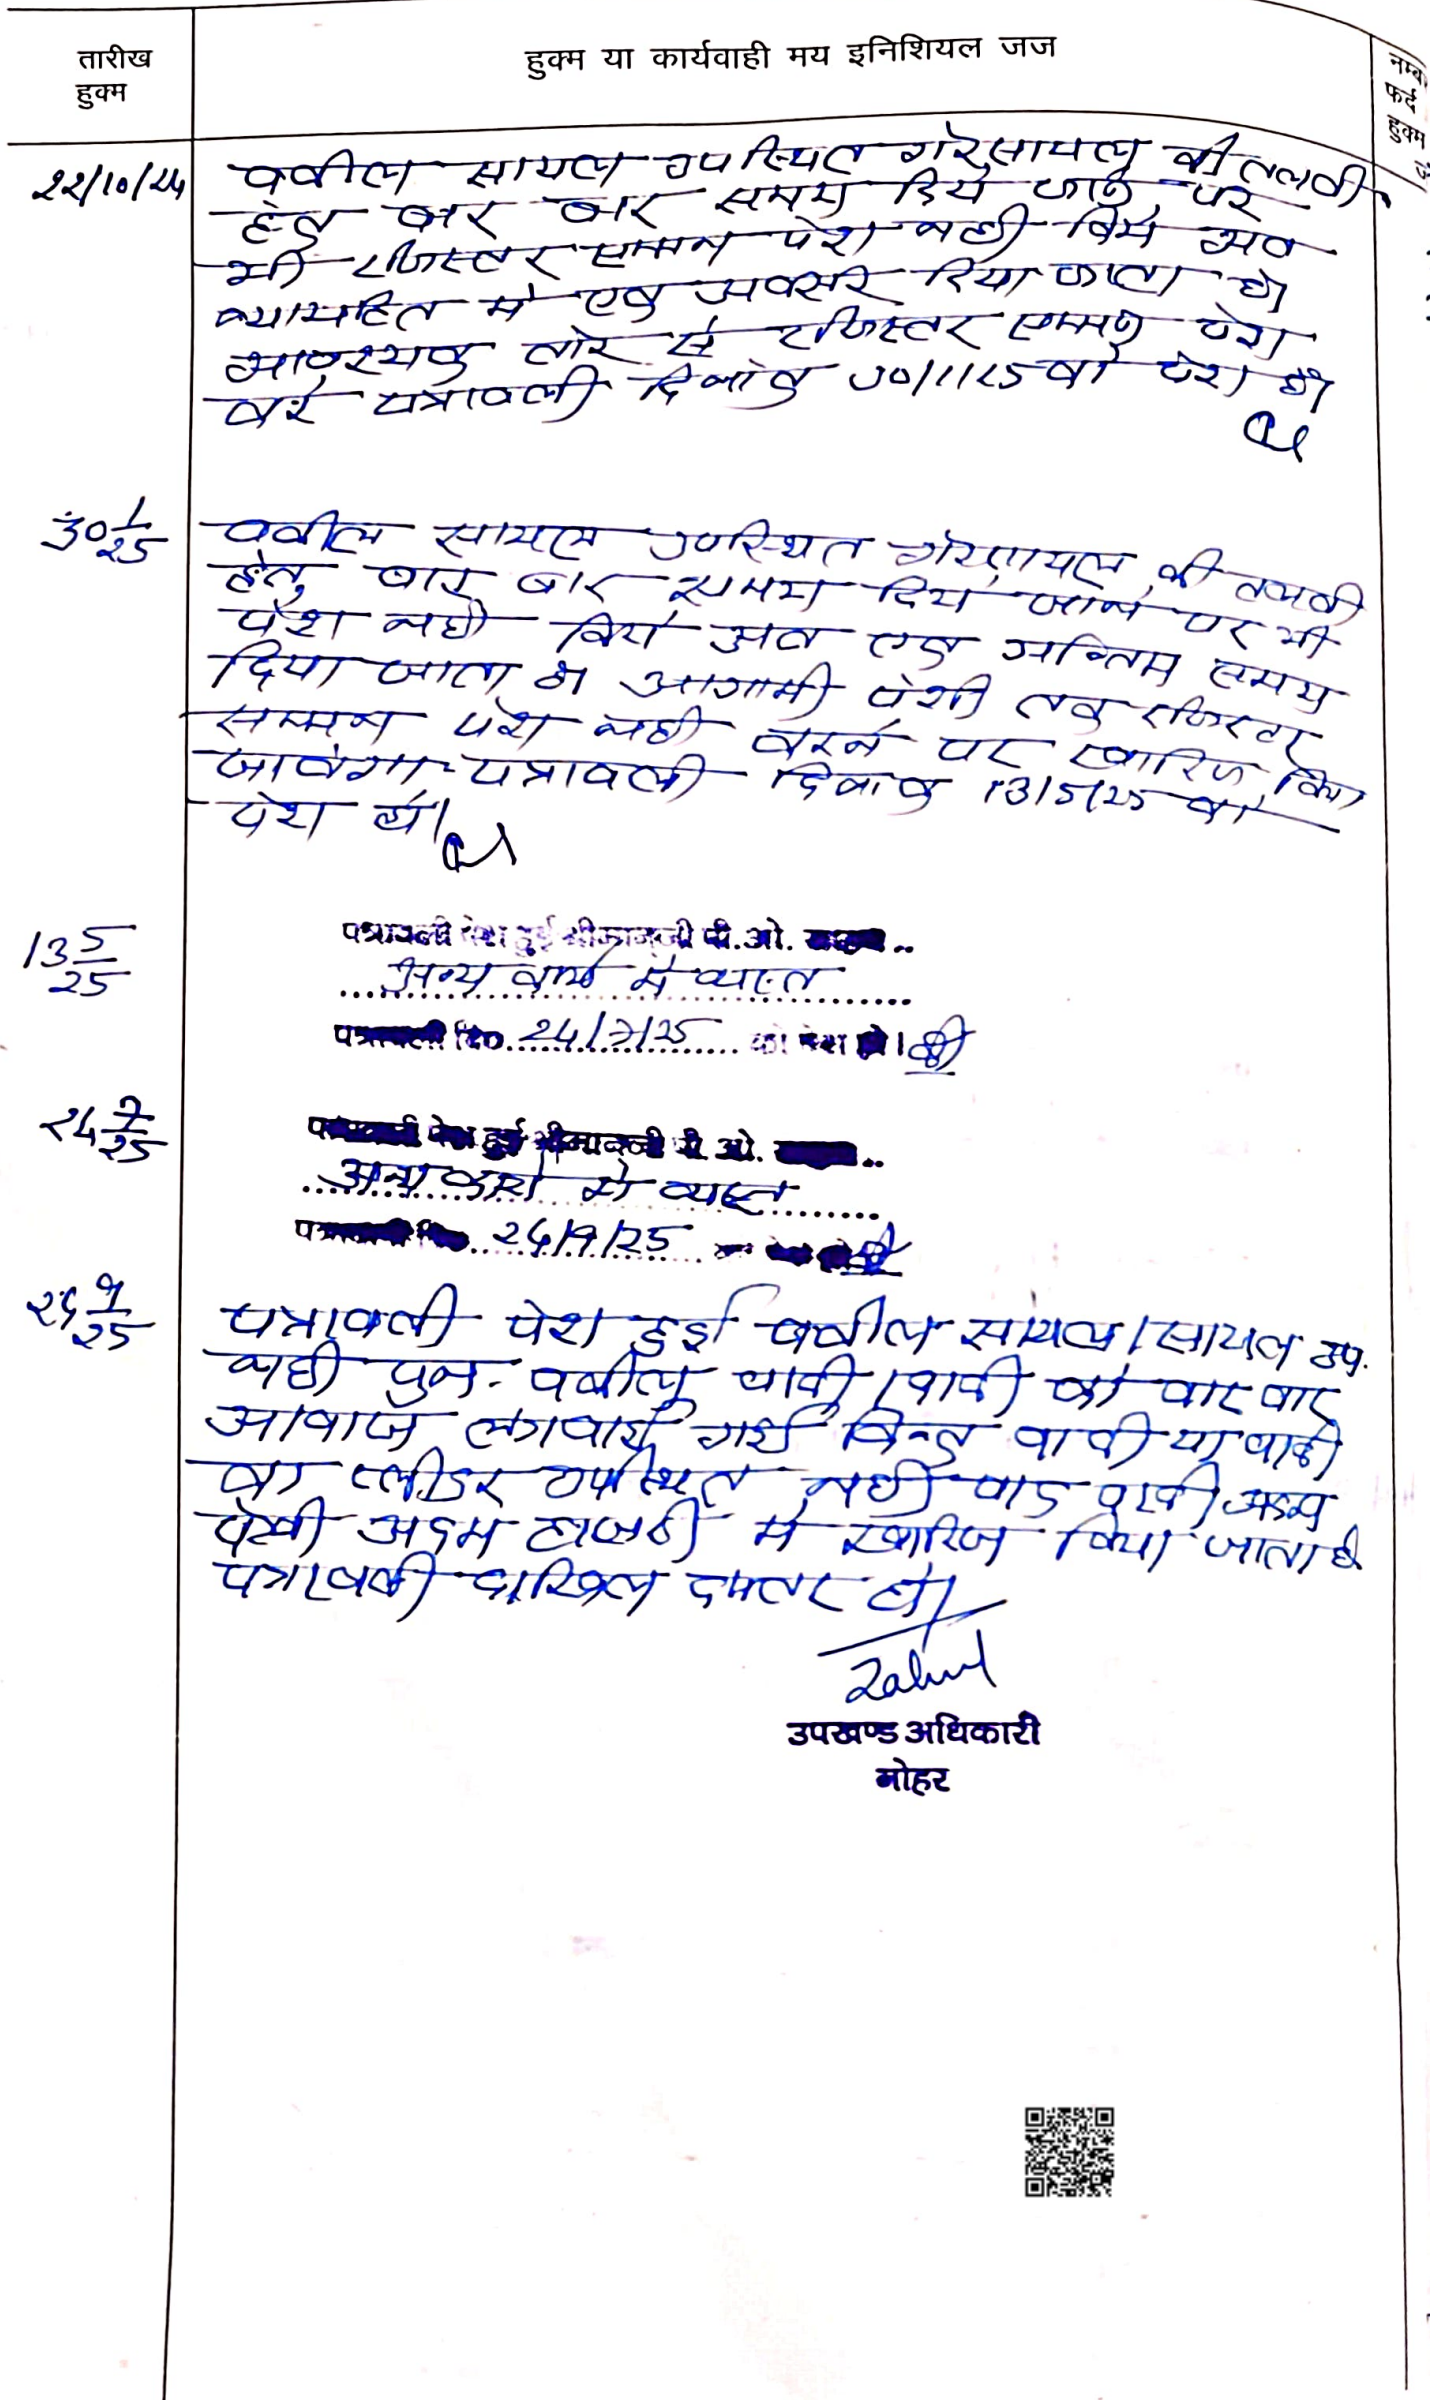 तारीख
हुक्म
हुक्म या कार्यवाही मय इनिशियल जज
फर्द
हुक्म
22/10/24
वकील सायल उपस्थित गैरसायल की तलवी
हेतु बार बार समय दिये जाने पर
भी रजिस्टर सम्मन पेश नही किये अव
न्यायहित मे एक अवसर दिया जाता हो
आवश्यक तोर से रजिस्टर सम्मन पेश
करे पत्रावली दिनांक 30/1/25 को पेश हो
30 1/25
वकील सायल उपस्थित गैरसायल की तलवी
हेतु बार बार समय दिये जाने पर भी
पेश नही किये अव एक अन्तिम समय
दिया जाता हे आगामी पेशी तक रजिस्टर
सम्मन पेश नही करने पर खारिज किया
जावेगा पत्रावली दिनांक 13/5/25 को
पेश हो।
13 5/25
पत्रावली पेश हुई श्रीमानजी पी.ओ.
अन्य कार्य मे व्यस्त
पत्रावली दि0 24/7/25 को पेश हो।
24 7/25
पत्रावली पेश हुई श्रीमानजी पी. ओ.
अन्य कार्य मे व्यस्त
24/9/25
24 9/25
पत्रावली पेश हुई वकील सायल/सायल उप.
नही पुन. वकील वादी/वादी को वार वार
आवाज लगवाई गई किन्तु वादी या वादी
का प्लीडर उपस्थित नही वाद अदम
पेरवी अदम हाजरी मे खारिज किया जाता हे
पत्रावली दाखिल दफ्तर हो।
उपखण्ड अधिकारी
नोहर